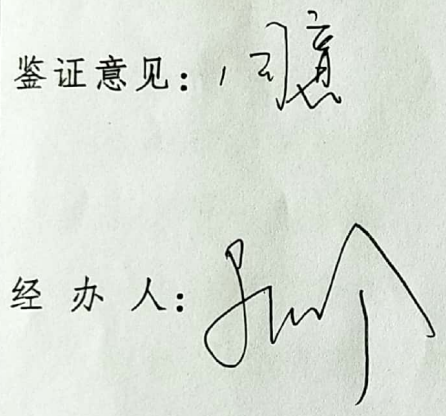 鉴证意见：同意
经办人：